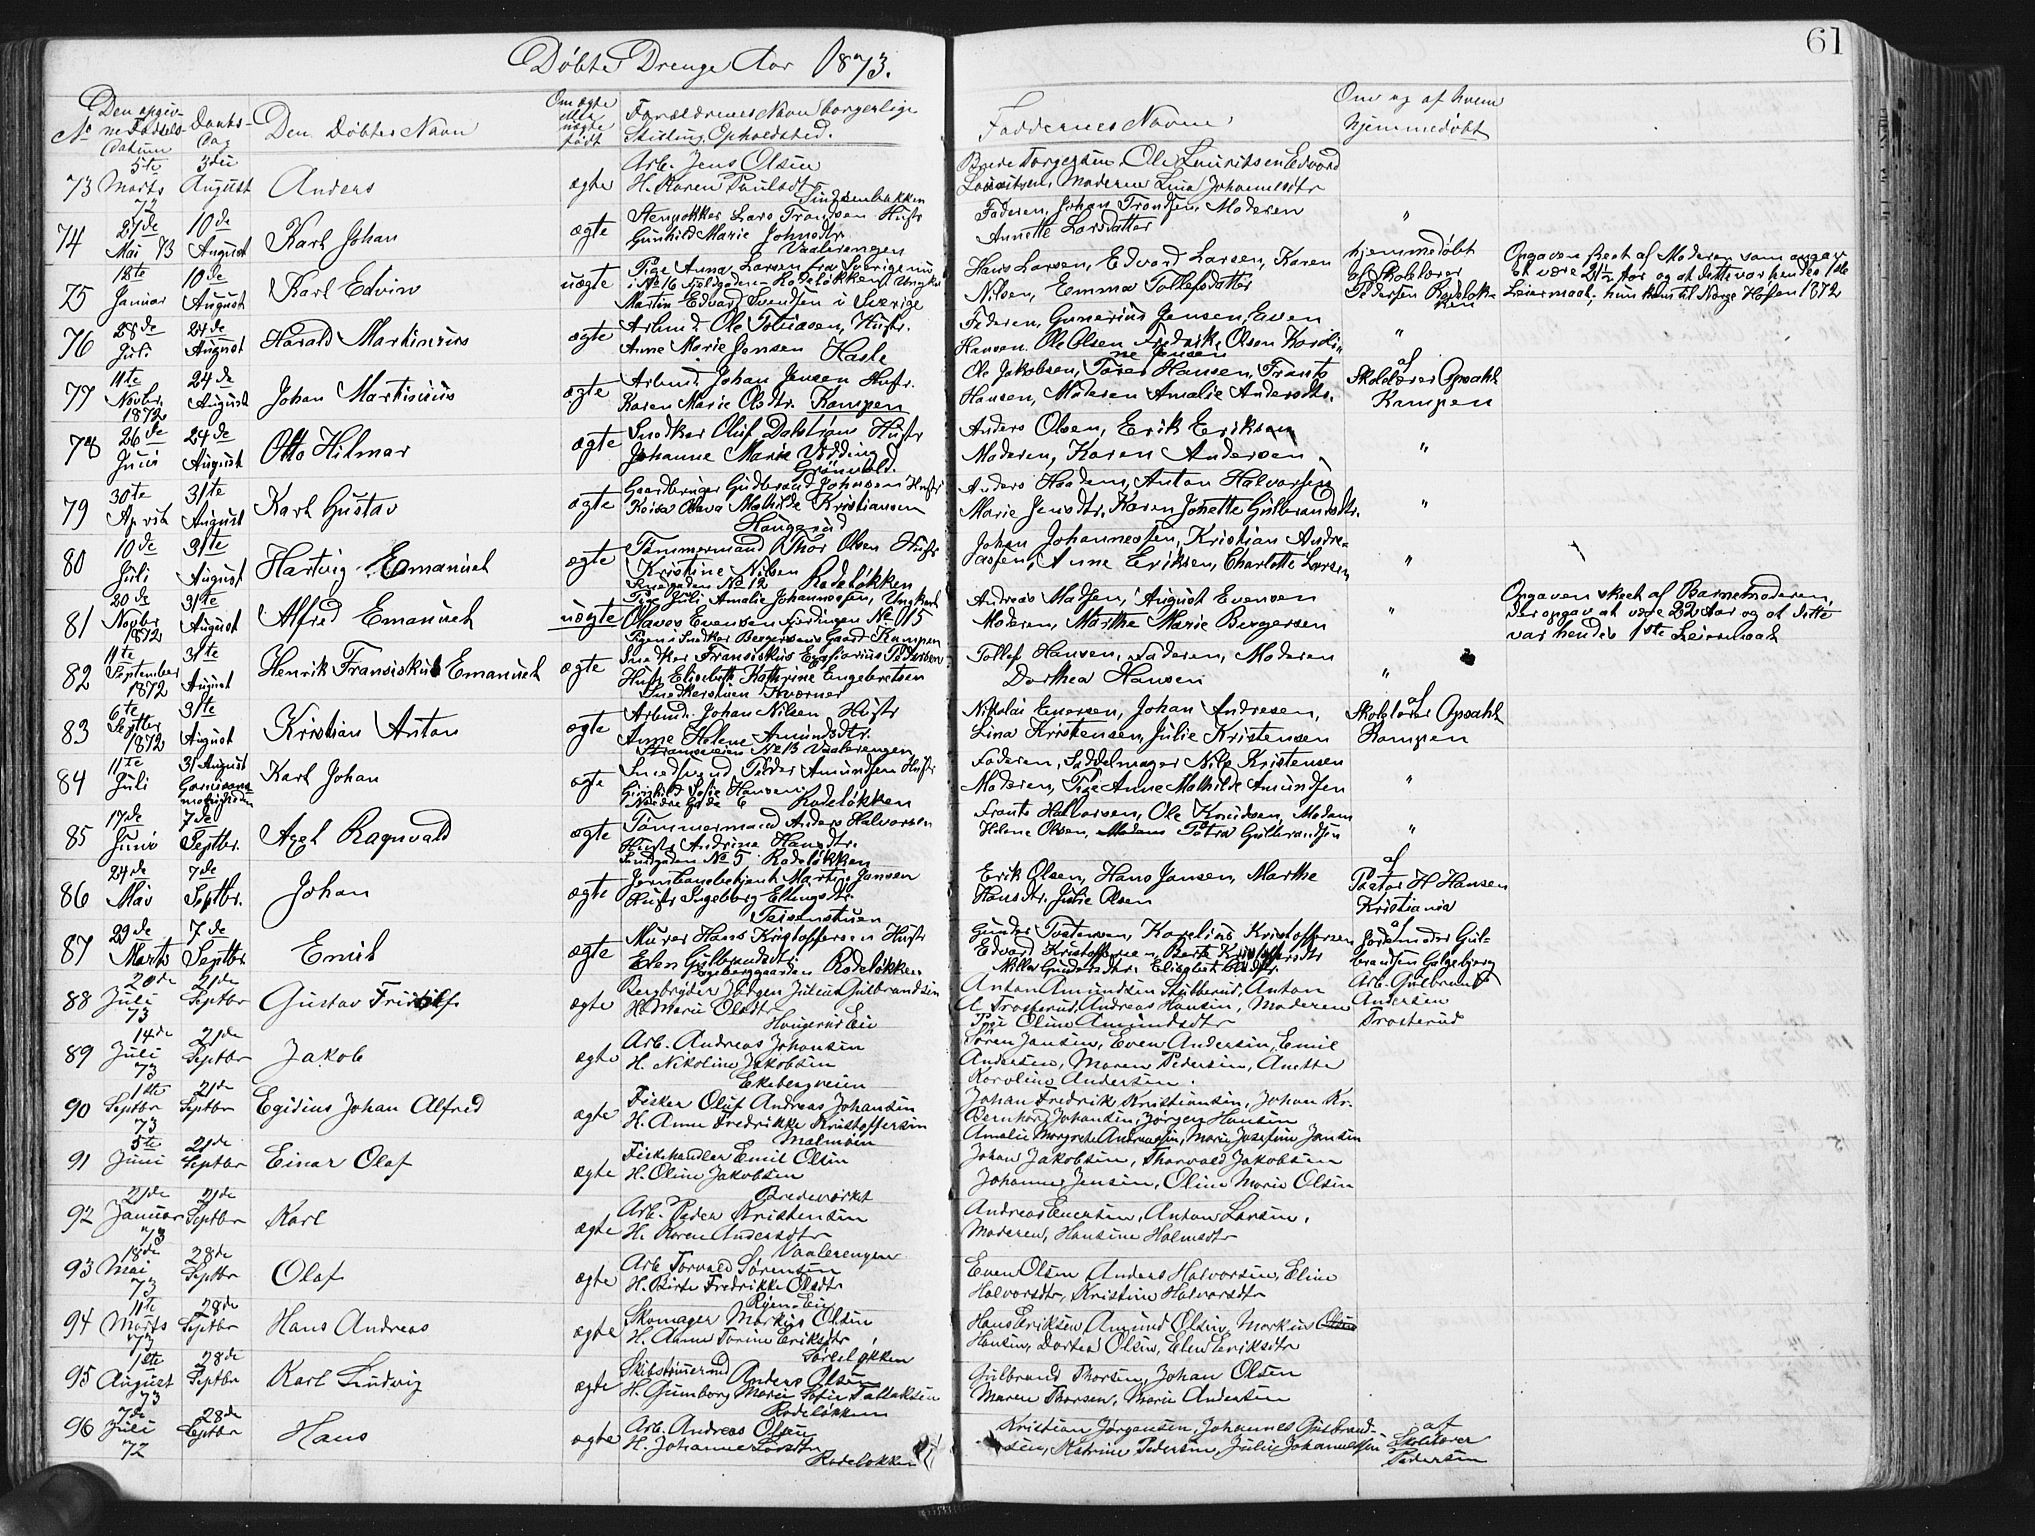 61
Døbte Drenge Aar 1873.
No
Den opgivne Fødsels Datum
Daabs Dag
Den Døbtes Navn
Om ægte eller uægte født
Forældrenes Navn borgerlige
Stilling, Opholdsted.
Faddernes Navne
Om og af hvem
hjemmedøbt
73 5te Marts 3die August Anders ægte
Arb. Jens Olsen
H. Karen Paulsdt
Borde Torgersen, Ole Lauritsen Edvard
Lauritsen, Moderen Lina Johannesdtr
74 27de Mai 73 10de August Karl Johan ægte
Stenpokker Lars Trondsen Hustr
Gunhild Marie Johnsdtr
Vaalerengen
Faderen, Johan Trondsen, Moderen
Annette Larsdatter
"
75 18te Januar 10de August Karl Edvin uægte
Pige Anna Larsen fra Sverige nu
i No 16 Rodeløkken Ungkarl
Martin Edvard Svendsen i Sverige
Hans Larsen, Edvard Larsen, Karen
Nilsen, Emma Tollefsdatter
hjemmedøbt
af Skolelærer
Pedersen Rodeløkken
Opgaven skeet af Moderen som opgav
at være 21½ Aar og at dette var hendes 1ste
Leiermaal, hun kom til Norge Høsten 1872
76 28de Juli 24de August Harald Martinius ægte
Arbmd. Ole Tobiasen, Hustr.
Anne Marie Jensen Hasle
Faderen, Gunerius Jensen, Even
Hansen, Ole Olsen, Fredrik Olsen Karoline Jensen
"
77 11te Novbr. 1872 24de August Johan Martinius ægte
Arbmd. Johan Jensen Hustr.
Karen Marie Olsdtr. Kampen
Ole Jakobsen, Tores Hansen, Frants
Hansen, Moderen Amalie Andersdtr.
af
Skolelærer Opsahl
Kampen
78 26de Juni 24de August Otto Hilmar ægte
Snedker Oluf Dalstrøm Hustr
Johanne Marie Vedding
Grønvold.
Anders Olsen, Erik Eriksen
Moderen, Karen Andersen
"
79 30te April 31te August Karl Gustav ægte
Gaardbruger Gudbrand Johnsen Hustr
Mathilde Kristiansen
Haugerud
Anders Haaden, Anton Halvorsen
Marie Jensdtr. Karen Jonette Gulbrandsdtr.
"
80 10de Juli 31te August Hartvig Emanuel ægte
Tømmermand Thor Olsen Hustr
Kristine Nilsen
No 12 Rodeløkken
Johan Johannessen, Kristian Andreassen, Anne Eriksen, Charlotte Larsen
"
81 20de Novbr 1872 31te August Alfred Emanuel uægte
Pige Juli Amalie Johannessen, Ungkarl
Olaves Evensen No 115
Pigen i Snedker Bergersens Gaard Kampen
Andreas Madsen, August Evensen
Moderen, Marthe Marie Bergersen
"
Opgaven skeet af Barnemoderen,
der opgav at være 22 Aar og at dette
var hendes 1ste Leiermaal
82 11te September 1872 31te August Henrik Fransiskus Emanuel ægte
Snedker Fransiskus Pedersen
Hustr Elisabeth Kathrine Engebretsen
Kværner
Tollef Hansen, Faderen, Moderen
Dorthea Hansen
"
83 6te Septbr 1872 31te August Kristian Anton ægte
Arbmd. Johan Nilsen Hustr
Anne Helene Amundsdtr.
Strømsveien No 13 Vaalerengen
Nikolai Enersen, Johan Andresen,
Lina Kristensen, Julie Kristensen
af
Skolelærer Opsahl
Kampen
84 11te Juli 31 August Garnisonsmenigheden Karl Johan ægte
Smedsvend Peder Amundsen Hustr
Gunhild Sofie Hansen
Nedre Gade 6 Rodeløkken
Faderen, Saddelmager Nils Kristensen
Moderen, Pige Anne Mathilde Amundsen
"
85 17de Juni 7de Septbr. Axel Ragnvald ægte
Tømmermand Anders Halvorsen
Hustr Andrine Hansdtr.
No 5 Rodeløkken
Frants Halvorsen, Ole Knudsen, Madam
Helene Olsen, Petra Gulbrandsen
"
86 24de Mai 7de Septbr. Johan ægte
Jernbanebetjent Martin Jansen
Hustr Ingeborg Ellingsdtr.
Teisenstuen
Erik Olsen, Hans Jansen, Marthe
Hansdtr. Julie Olsen
af
Pastor H Hansen
Kristiania
87 29de Marts 7de Septbr Emil ægte
Murer Hans Kristoffersen Hustr
Elen Gulbrandsdtr.
Rodeløkken
Gunder Tostensen, Karelius Kristoffersen
Edvard Kristoffersen, Berte Kristoffersdtr
Gundersdtr. Elisabeth Olsdtr.
af
Jordmoder Gulbrandsen Galgeberg
88 20de Juli 73 21de Septbr Gustav Fridtjolf ægte
Bergbryder Jørgen Julius Gulbrandsen
H. Marie Olsdtr
Haugerud Eie
Anton Amundsen Skutterud, Anton
A Trosterud, Andreas Hansen, Moderen
Pige Oline Amundsdtr
Arb. Gulbrand
Andersen
Trosterud
89 14de Juli 73 21de Septbr Jakob ægte
Arb. Andreas Johansen
H. Nikoline Jakobsen
Ekebergveien
Søren Jansen, Even Andersen, Emil
Andersen, Maren Pedersen, Anette
Karoline Andersen.
90 1ste Septbr 73 21de Septbr Egidius Johan Alfred ægte
Fisker Oluf Andreas Johansen
H. Anne Fredrikke Kristoffersen
Malmøen
Johan Fredrik Kristiansen, Johan Kr.
Bernhard Johansen, Jørgen Hansen
Amalie Margrete Andreassen, Marie Josefine Jansen
91 5te Juni 21de Septbr Einar Olaf ægte
Fiskehandler Emil Olsen
H. Oline Jakobsen
Bredeværket
Johan Jakobsen, Thorvald Jakobsen
Johanne Jensen, Oline Marie Olsen
92 21de Januar 73 21de Septbr Karl ægte
Arb. Peder Kristensen
H. Karen Andersdtr
Vaalerengen
Andreas Enersen, Anton Larsen,
Moderen, Hansine Holmsdtr
93 18de Mai 73 28de Septbr Olaf ægte
Arb Torvald Sørensen
H. Birte Fredrikke Olsdtr
Ryen-Eie
Even Olsen Anders Halvorsen, Eline
Halvorsdtr, Kristine Halvorsdtr
94 11te Marts 73 28de Septbr Hans Andreas ægte
Skomager Markus Olsen
H. Anne Torine Eriksdtr
Hans Eriksen Amund Olsen, Markus Olsen
Hansen, Dortea Olsen, Elen Eriksdtr
95 1ste August 73 28de Septbr Karl Ludvig ægte
Skibstømmermd Anders Olsen
H. Gunborg Marie Sofie Tallaksen
Rodeløkken
Gulbrand Thorsen, Johan Olsen
Maren Thorsen, Marie Andersen
96 7de Juli 72 28de Septbr Hans ægte
Arb. Andreas Olsen
H. Johanne Larsdtr
Rodeløkken
Kristian Jørgensen, Johannes Gulbrandsen, Katrine Pedersen, Julie Johannessen
af
Skolelærer
Pedersen